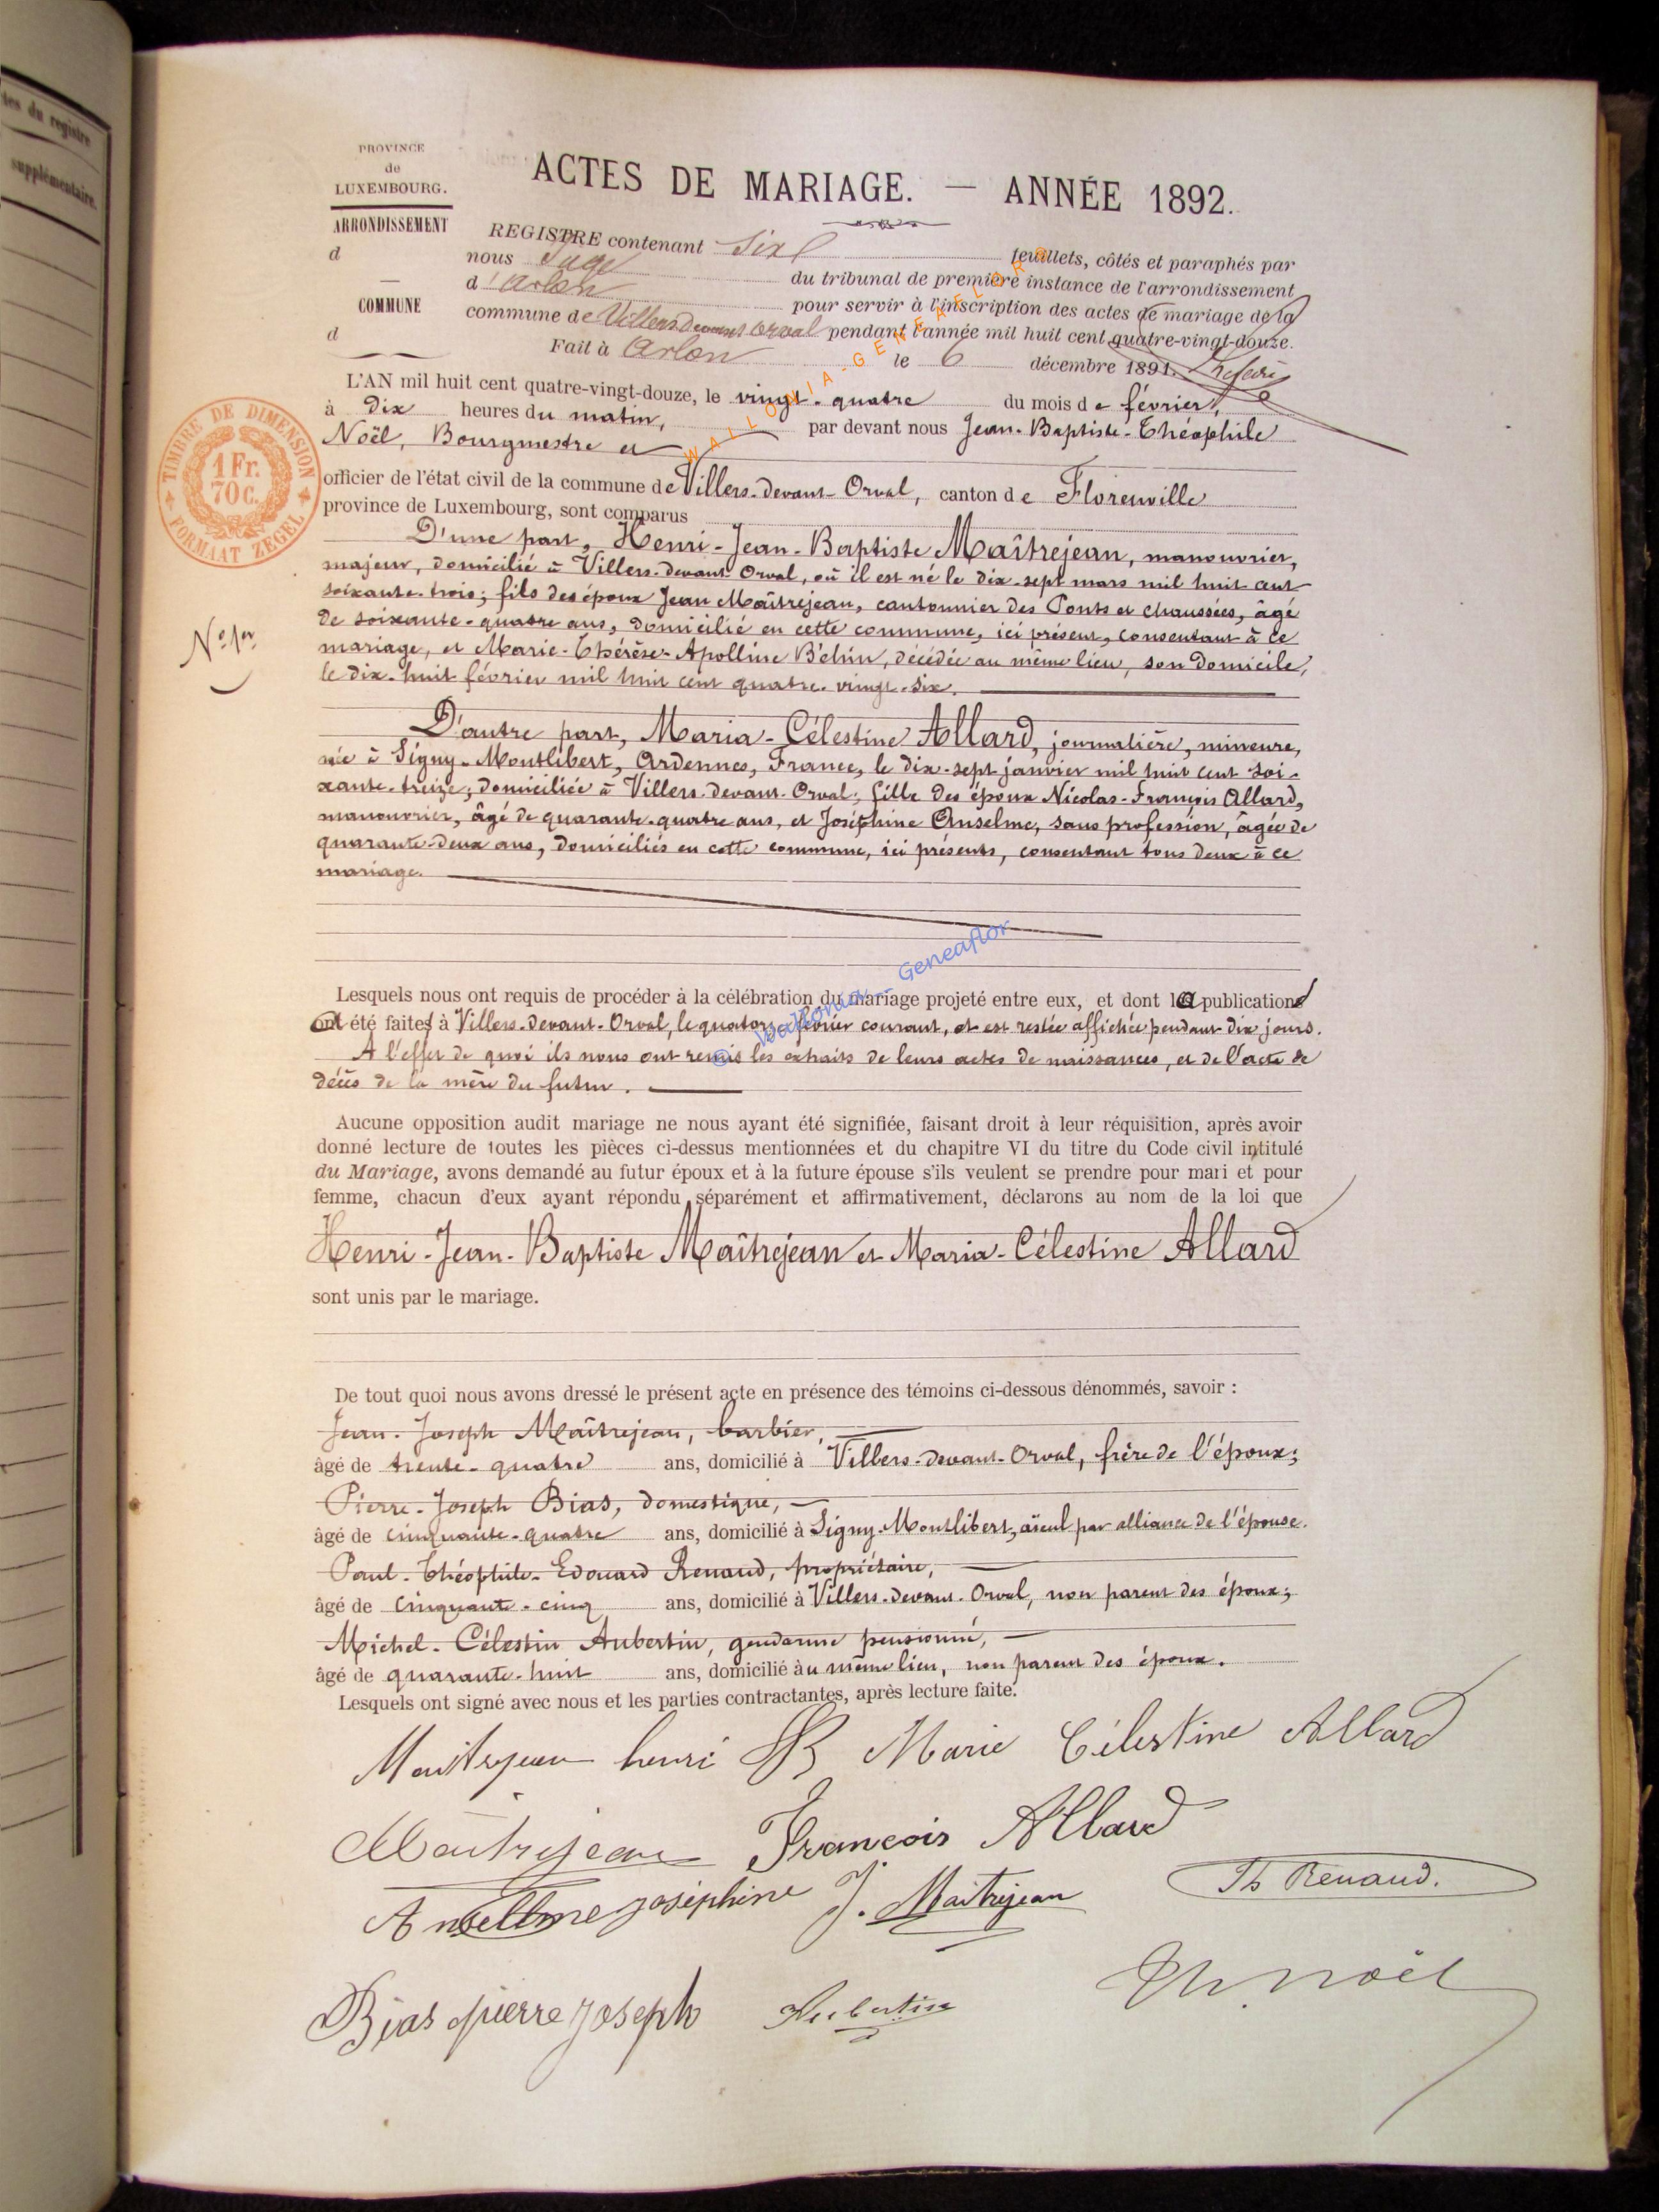 tes du registre
supplémentaire.
PROVINCE
de
LUXEMBOURG.
ARRONDISSEMENT
d
COMMUNE
d
ACTES DE MARIAGE. — ANNÉE 1892.
REGISTRE contenant Six feuillets, côtés et paraphés par
nous Juge du tribunal de première instance de l'arrondissement
d'Arlon pour servir à l'inscription des actes de mariage de la
commune de Villers devant Orval pendant l'année mil huit cent quatre-vingt-douze.
Fait à Arlon le 6 décembre 1891.
L'AN mil huit cent quatre-vingt-douze, le vingt-quatre du mois de février,
à dix heures du matin, par devant nous Jean-Baptiste-Théophile
Noël, Bourgmestre et
officier de l'état civil de la commune de Villers-devant-Orval, canton de Florenville
province de Luxembourg, sont comparus
TIMBRE DE DIMENSION
1 Fr.
70 c.
FORMAAT ZEGEL
D'une part, Henri-Jean-Baptiste Maîtrejean, manouvrier,
majeur, domicilié à Villers-devant-Orval, où il est né le dix-sept mars mil huit cent
soixante-trois; fils des époux Jean Maîtrejean, cantonnier des Ponts et chaussées, âgé
de soixante-quatre ans, domicilié en cette commune, ici présent, consentant à ce
mariage, et Marie-Thérèse-Apolline Béchin, décédée au même lieu, son domicile,
le dix-huit février mil huit cent quatre-vingt-six.
No 1er
D'autre part, Maria-Célestine Allard, journalière, mineure,
née à Signy-Montlibert, Ardennes, France, le dix-sept janvier mil huit cent soi-
xante-treize; domiciliée à Villers-devant-Orval; fille des époux Nicolas-François Allard,
manouvrier, âgé de quarante-quatre ans, et Joséphine Anselme, sans profession, âgée de
quarante-deux ans, domiciliés en cette commune, ici présents, consentant tous deux à ce
mariage.
Lesquels nous ont requis de procéder à la célébration du mariage projeté entre eux, et dont la publication
ont été faite à Villers-devant-Orval, le quatorze février courant, et est restée affichée pendant dix jours.
A l'effet de quoi ils nous ont remis les extraits de leurs actes de naissances, et de l'acte de
décès de la mère du futur.
Aucune opposition audit mariage ne nous ayant été signifiée, faisant droit à leur réquisition, après avoir
donné lecture de toutes les pièces ci-dessus mentionnées et du chapitre VI du titre du Code civil intitulé
du Mariage, avons demandé au futur époux et à la future épouse s'ils veulent se prendre pour mari et pour
femme, chacun d'eux ayant répondu séparément et affirmativement, déclarons au nom de la loi que
Henri-Jean-Baptiste Maîtrejean et Maria-Célestine Allard
sont unis par le mariage.
De tout quoi nous avons dressé le présent acte en présence des témoins ci-dessous dénommés, savoir :
Jean-Joseph Maîtrejean, barbier,
âgé de trente-quatre ans, domicilié à Villers-devant-Orval, frère de l'époux;
Pierre-Joseph Bias, domestique,
âgé de cinquante-quatre ans, domicilié à Signy-Montlibert, aïeul par alliance de l'épouse.
Paul-Théophile-Edouard Renaud, propriétaire,
âgé de cinquante-cinq ans, domicilié à Villers-devant-Orval, non parent des époux;
Michel-Célestin Aubertin, gendarme pensionné,
âgé de quarante-huit ans, domicilié au même lieu, non parent des époux.
Lesquels ont signé avec nous et les parties contractantes, après lecture faite.
Maitrejean henri Marie Célestine Allard
Maitrejean François Allard
Anselme joséphine J. Maitrejean Th Renaud.
Bias pierre joseph Aubertin Th. Noël
WALLONIA-GENEAFLOR
© Wallonia - Geneaflor